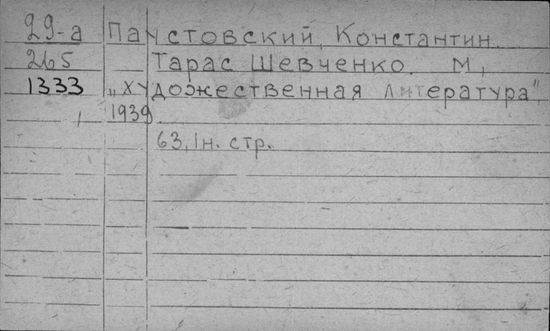 29-а Паустовский, Константин.
265 Тарас Шевченко. М,
1333 „художественная литература",
1939
63, Ін. стр.